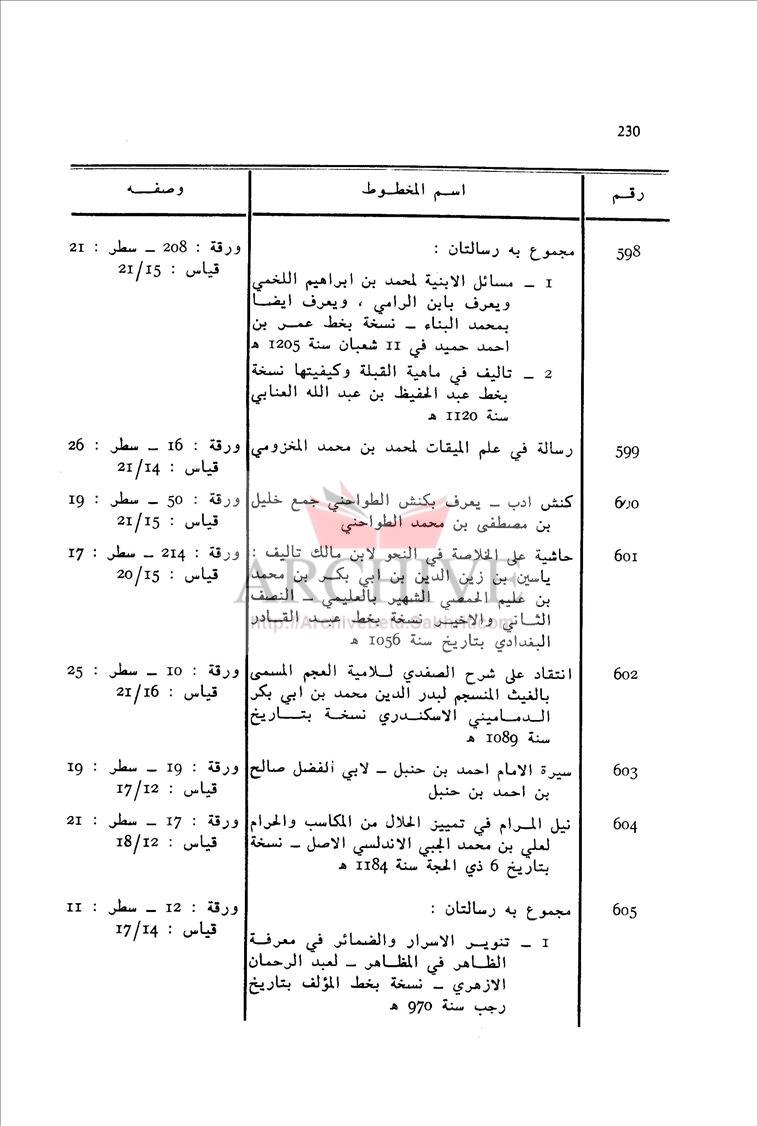 230
رقم اسم المخطوط وصفه
598 مجموع به رسالتان : ورقة : 208 ــ سطر : 21
قياس : 21/15
1 ــ مسائل الابنية لمحمد بن ابراهيم اللخمي
ويعرف بابن الرامي ، ويعرف ايضا
بمحمد البناء ــ نسخة بخط عمر بن
احمد حميد في 11 شعبان سنة 1205 هـ
2 ــ تاليف في ماهية القبلة وكيفيتها نسخة
بخط عبد الحفيظ بن عبد الله العنابي
سنة 1120 هـ
599 رسالة في علم الميقات لمحمد بن محمد المخزومي ورقة : 16 ــ سطر : 26
قياس : 21/14
600 كنش ادب ــ يعرف بكنش الطواحني جمع خليل ورقة : 50 ــ سطر : 19
بن مصطفى بن محمد الطواحني قياس : 21/15
601 حاشية على الخلاصة في النحو لابن مالك تاليف : ورقة : 214 ــ سطر : 17
ياسين بن زين الدين بن ابي بكر بن محمد قياس : 20/15
بن عليم الحمصي الشهير بالعليمي ــ النصف
الثاني والاخير نسخة بخط عبد القادر
البغدادي بتاريخ سنة 1056 هـ
602 انتقاد على شرح الصفدي للامية العجم المسمى ورقة : 10 ــ سطر : 25
بالغيث المنسجم لبدر الدين محمد بن ابي بكر قياس : 21/16
الدماميني الاسكندري نسخة بتاريخ
سنة 1089 هـ
603 سيرة الامام احمد بن حنبل ــ لابي الفضل صالح ورقة : 19 ــ سطر : 19
بن احمد بن حنبل قياس : 17/12
604 نيل المرام في تمييز الحلال من المكاسب والحرام ورقة : 17 ــ سطر : 21
لعلي بن محمد الجبي الاندلسي الاصل ــ نسخة قياس : 18/12
بتاريخ 6 ذي الحجة سنة 1184 هـ
605 مجموع به رسالتان : ورقة : 12 ــ سطر : 11
قياس : 17/14
1 ــ تنوير الاسرار والضمائر في معرفة
الظاهر في المظاهر ــ لعبد الرحمان
الازهري ــ نسخة بخط المؤلف بتاريخ
رجب سنة 970 هـ
ARCHIVE
http://Archivebeta.Sakhrit.com